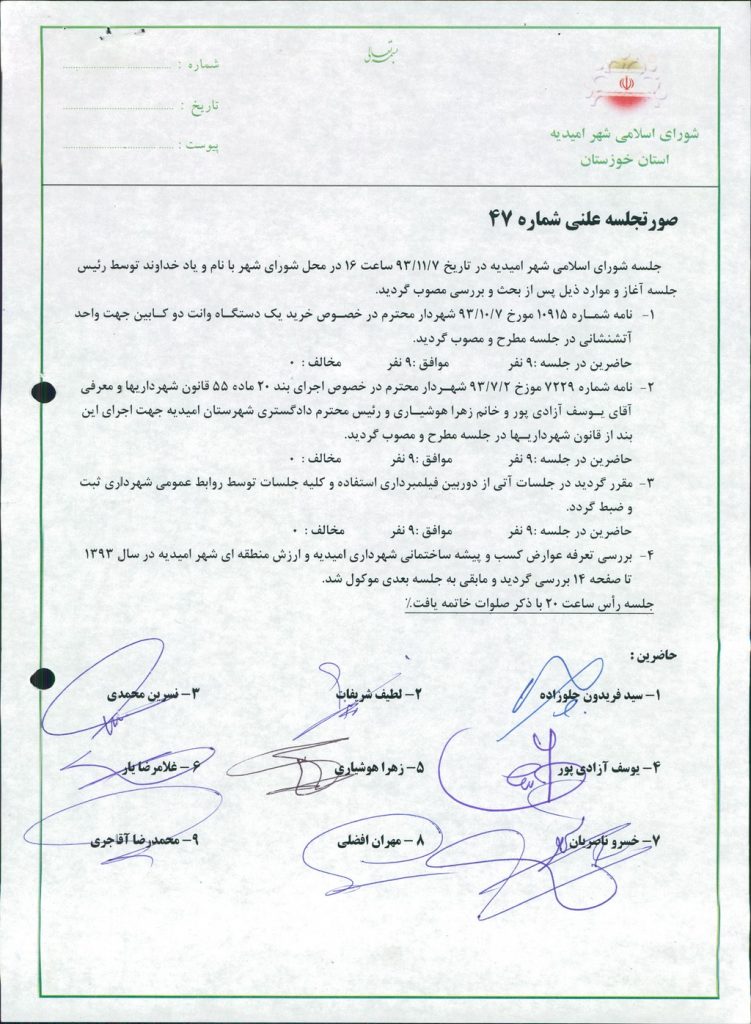 بسمه تعالی
شورای اسلامی شهر امیدیه
استان خوزستان
شماره : ........................
تاریخ : ........................
پیوست : ........................
صورتجلسه علنی شماره ۴۷
جلسه شورای اسلامی شهر امیدیه در تاریخ ۹۳/۱۱/۷ ساعت ۱۶ در محل شورای شهر با نام و یاد خداوند توسط رئیس
جلسه آغاز و موارد ذیل پس از بحث و بررسی مصوب گردید.
۱- نامه شماره ۱۰۹۱۵ مورخ ۹۳/۱۰/۷ شهردار محترم در خصوص خرید یک دستگاه وانت دو کابین جهت واحد
آتشنشانی در جلسه مطرح و مصوب گردید.
حاضرین در جلسه :۹ نفر موافق :۹ نفر مخالف : ۰
۲- نامه شماره ۷۲۲۹ موزخ ۹۳/۷/۲ شهردار محترم در خصوص اجرای بند ۲۰ ماده ۵۵ قانون شهرداریها و معرفی
آقای یوسف آزادی پور و خانم زهرا هوشیاری و رئیس محترم دادگستری شهرستان امیدیه جهت اجرای این
بند از قانون شهرداریها در جلسه مطرح و مصوب گردید.
حاضرین در جلسه :۹ نفر موافق :۹ نفر مخالف : ۰
۳- مقرر گردید در جلسات آتی از دوربین فیلمبرداری استفاده و کلیه جلسات توسط روابط عمومی شهرداری ثبت
و ضبط گردد.
حاضرین در جلسه :۹ نفر موافق :۹ نفر مخالف : ۰
۴- بررسی تعرفه عوارض کسب و پیشه ساختمانی شهرداری امیدیه و ارزش منطقه ای شهر امیدیه در سال ۱۳۹۳
تا صفحه ۱۴ بررسی گردید و مابقی به جلسه بعدی موکول شد.
جلسه رأس ساعت ۲۰ با ذکر صلوات خاتمه یافت.٪
حاضرین :
۱- سید فریدون جلوزاده ۲- لطیف شریفات ۳- نسرین محمدی
۴- یوسف آزادی پور ۵- زهرا هوشیاری ۶- غلامرضا یار
۷- خسرو ناصریان ۸- مهران افضلی ۹- محمدرضا آقاجری